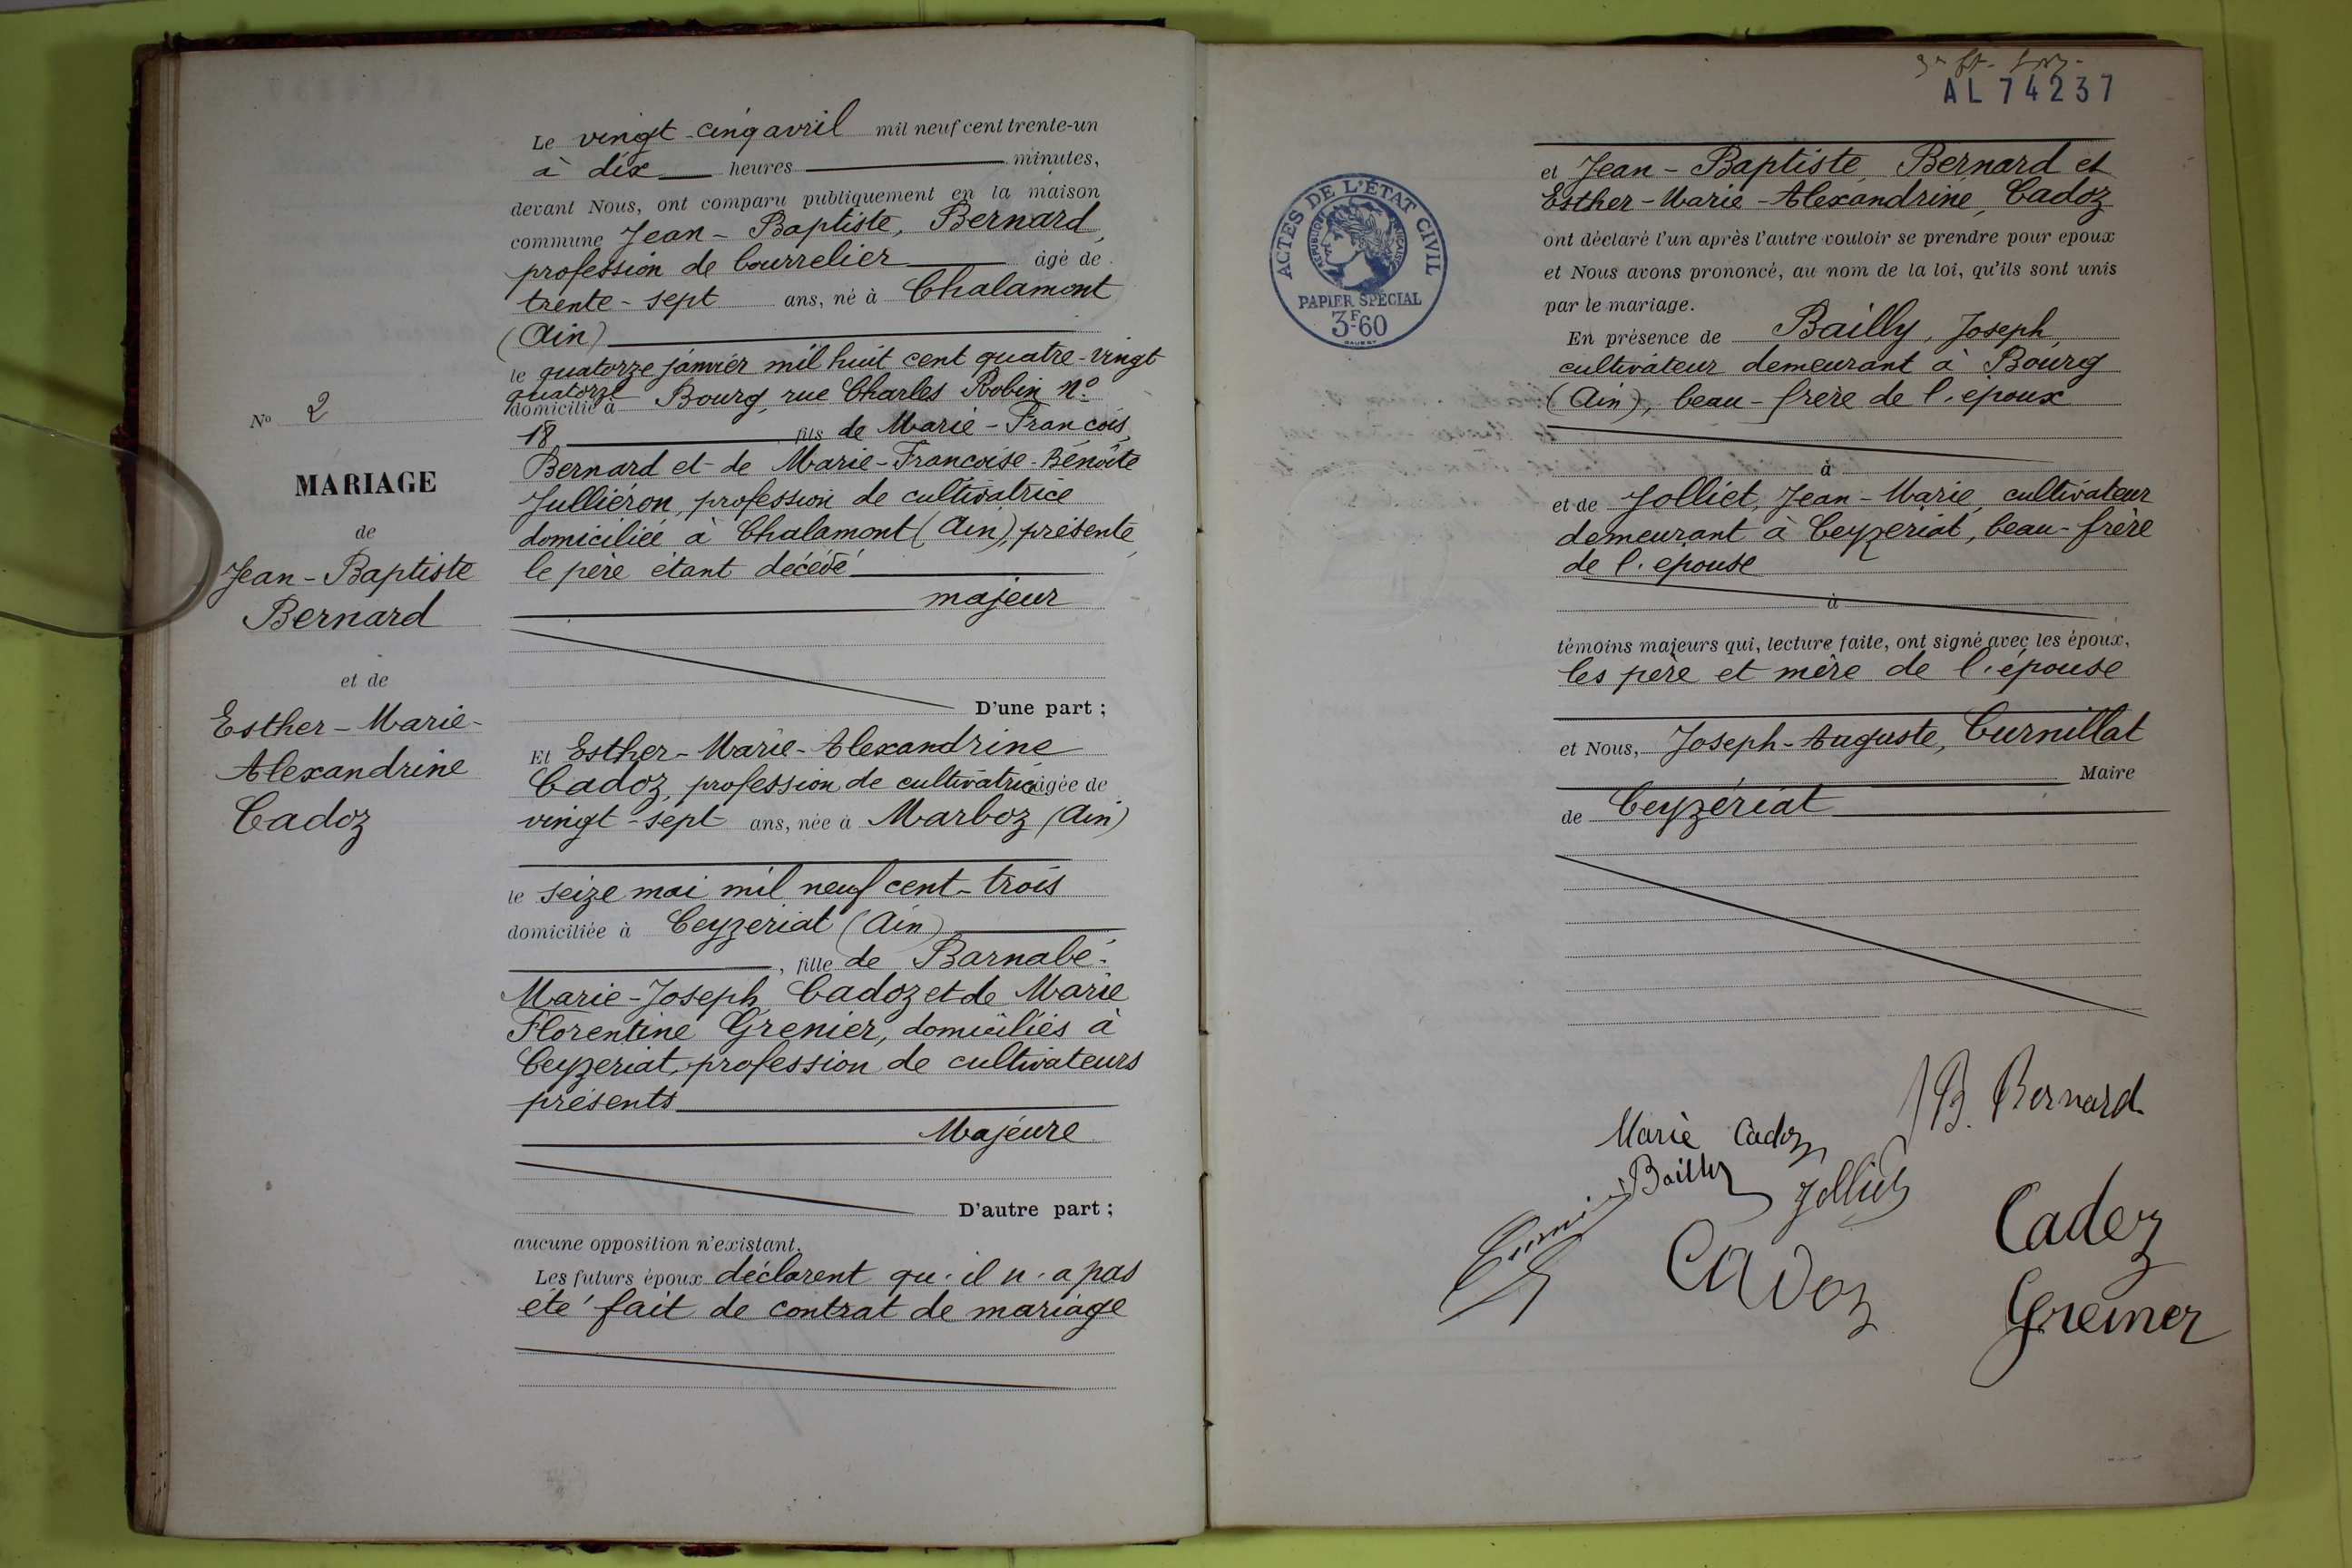 N° 2
MARIAGE
de
Jean-Baptiste
Bernard
et de
Esther-Marie-
Alexandrine
Cadoz
Le vingt-cinq avril mil neuf cent trente-un
à dix heures minutes,
devant Nous, ont comparu publiquement en la maison
commune Jean-Baptiste, Bernard,
profession de bourrelier âgé de
trente-sept ans, né à Chalamont
(Ain)
le quatorze janvier mil huit cent quatre-vingt
quatorze
domicilié à Bourg, rue Charles Robin n°
18 fils de Marie-François,
Bernard et de Marie-Françoise-Bénoite
Julliéron, profession de cultivatrice
domiciliée à Chalamont (Ain), présente,
le père étant décédé
majeur
D'une part ;
Et Esther-Marie-Alexandrine
Cadoz, profession de cultivatrice âgée de
vingt-sept ans, née à Marboz (Ain)
le seize mai mil neuf cent-trois
domiciliée à Ceyzeriat (Ain)
, fille de Barnabé-
Marie-Joseph, Cadoz et de Marie
Florentine Grenier, domiciliés à
Ceyzeriat, profession de cultivateurs
présents
Majeure
D'autre part ;
aucune opposition n'existant.
Les futurs époux déclarent qu'il n'a pas
été fait de contrat de mariage
AL 74237
ACTES DE L'ÉTAT CIVIL
RÉPUBLIQUE FRANÇAISE
PAPIER SPÉCIAL
3F60
et Jean-Baptiste, Bernard et
Esther-Marie-Alexandrine, Cadoz
ont déclaré l'un après l'autre vouloir se prendre pour époux
et Nous avons prononcé, au nom de la loi, qu'ils sont unis
par le mariage.
En présence de Bailly, Joseph,
cultivateur demeurant à Bourg
(Ain), beau-frère de l'époux
à
et de Jolliet, Jean-Marie, cultivateur
demeurant à Ceyzeriat, beau-frère
de l'epouse
à
témoins majeurs qui, lecture faite, ont signé avec les époux,
les père et mère de l'épouse
et Nous, Joseph-Auguste, Curnillat
Maire
de Ceyzériat
JB. Bernard
Marie Cadoz
Bailly
Jolliet
Cadoz
Cadoz
Grenier